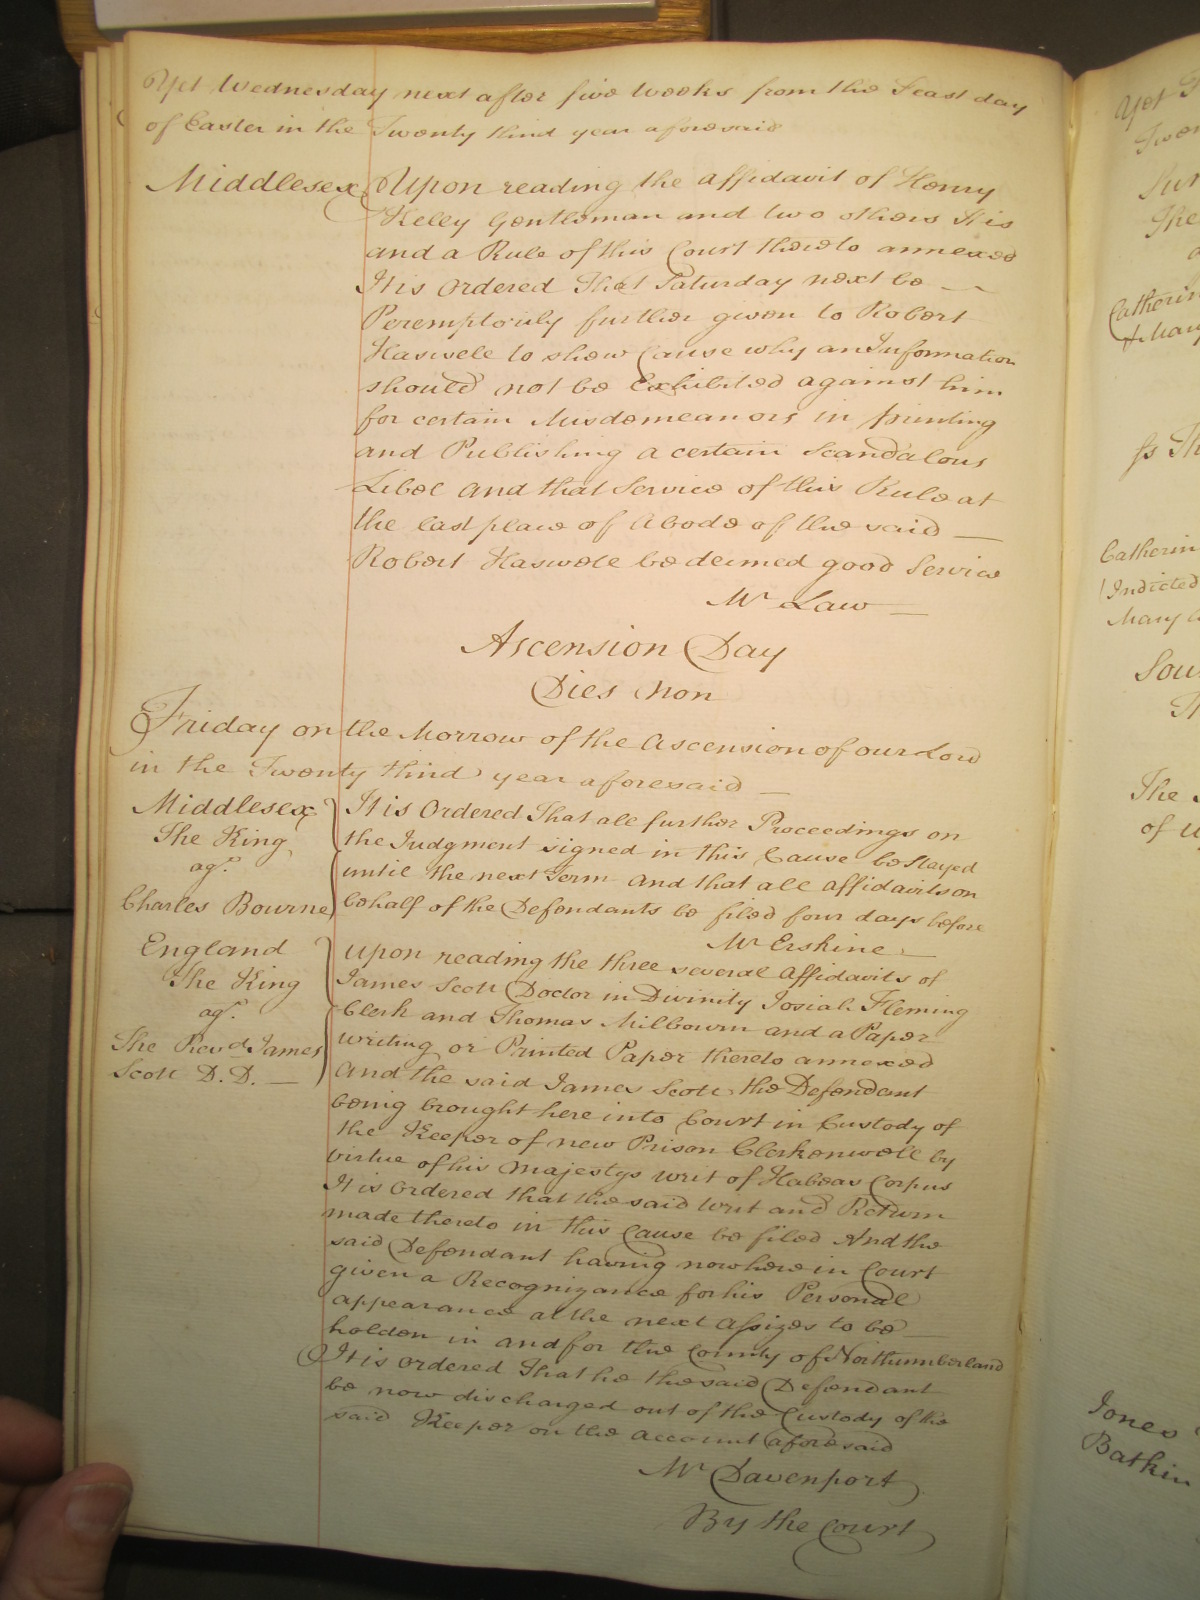 Yet Wednesday next after five Weeks from the Feast day
of Easter in the Twenty third year aforesaid
Middlesex Upon reading the affidavit of Henry
Kelly Gentleman and two others It is
and a Rule of this Court thereto annexed
It is Ordered That Saturday next be
Peremptorily further given to Robert
Haswell to shew Cause why an Information
should not be Exhibited against him
for certain Misdemeanors in printing
and Publishing a certain Scandalous
Libel and that Service of this Rule at
the last place of Abode of the said
Robert Haswell be deemed good Service
Mr Law
Ascension Day
Dies Non
Friday on the Morrow of the Ascension of our Lord
in the Twenty third year aforesaid
Middlesex
The King
agt.
Charles Bourne
It is Ordered That all further Proceedings on
the Judgment signed in this Cause be Stayed
until the next Term and that all affidavits on
behalf of the Defendants be filed four days before
Mr Erskine
England
The King
agt.
The Revd. James
Scott D.D.
Upon reading the three several affidavits of
James Scott Doctor in Divinity Josiah Fleming
Clerk and Thomas Milbourn and a Paper
writing or Printed Paper thereto annexed
And the said James Scott the Defendant
being brought here into Court in Custody of
the Keeper of new Prison Clerkenwell by
virtue of his Majestys writ of Habeas Corpus
It is Ordered that the said Writ and Return
made thereto in this Cause be filed And the
said Defendant having now here in Court
given a Recognizance for his Personal
appearance at the next Assizes to be
holden in and for the County of Northumberland
It is Ordered That he the said Defendant
be now discharged out of the Custody of the
said Keeper on the account aforesaid
Mr Davenport
By the Court
Yet
The
Catherin
& Mary
Catherin
Indicted
Mary
Sou
The
of
Jones
Batkin